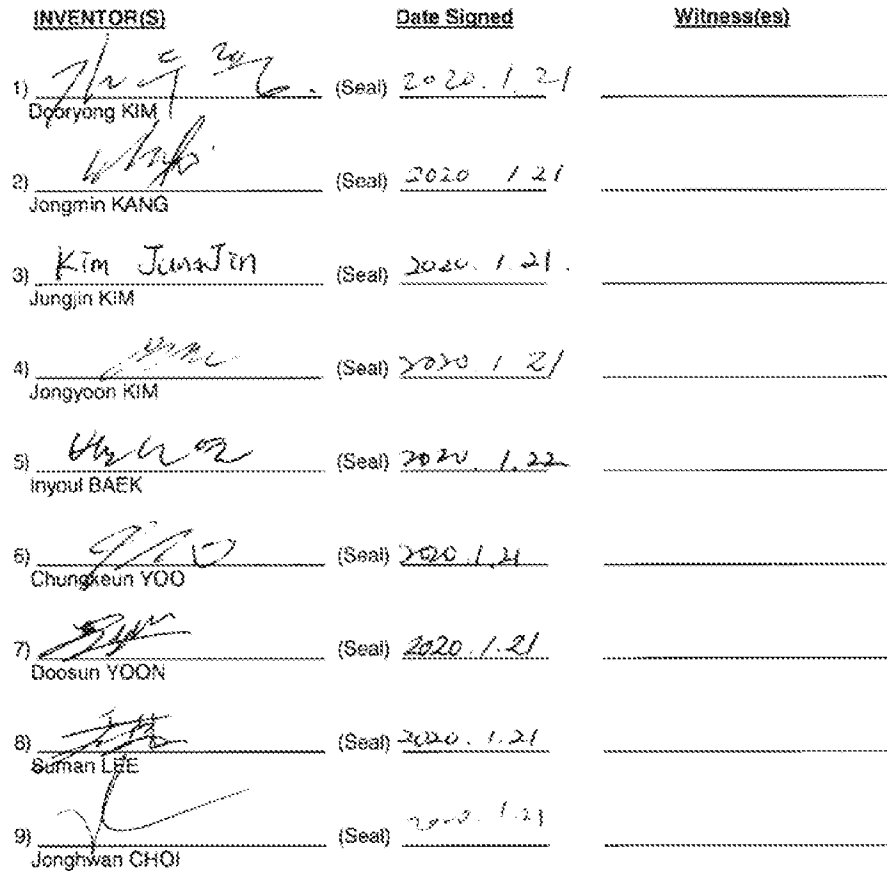 INVENTOR(S) Date Signed Witness(es)
1) (Seal) 2020. 1. 21
Dooryong KIM
2) (Seal) 2020 1 21
Jongmin KANG
3) Kim JungJin (Seal) 2020. 1. 21.
Jungjin KIM
4) (Seal) 2020 1 21
Jongyoon KIM
5) (Seal) 2020. 1. 22
Inyoul BAEK
6) (Seal) 2020. 1. 21
Chungkeun YOO
7) (Seal) 2020. 1. 21
Doosun YOON
8) (Seal) 2020. 1. 21
Suman LEE
9) (Seal) 2020. 1. 21
Jonghwan CHOI